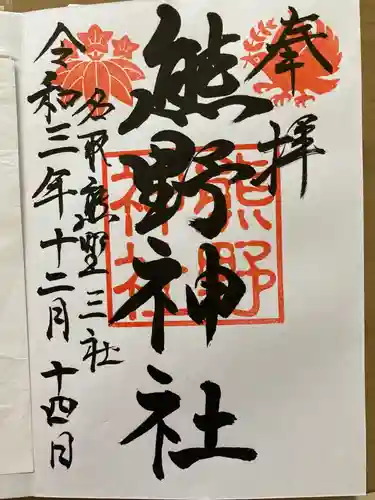 奉拝
熊野神社
熊野
神社
名取熊野三社
令和三年十二月十四日